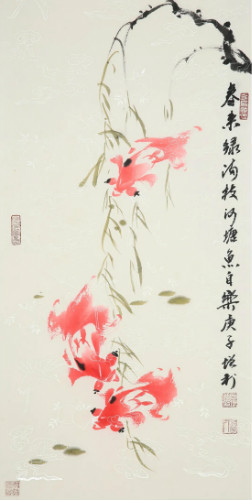 春来绿满枝河塘鱼自乐庚子培利